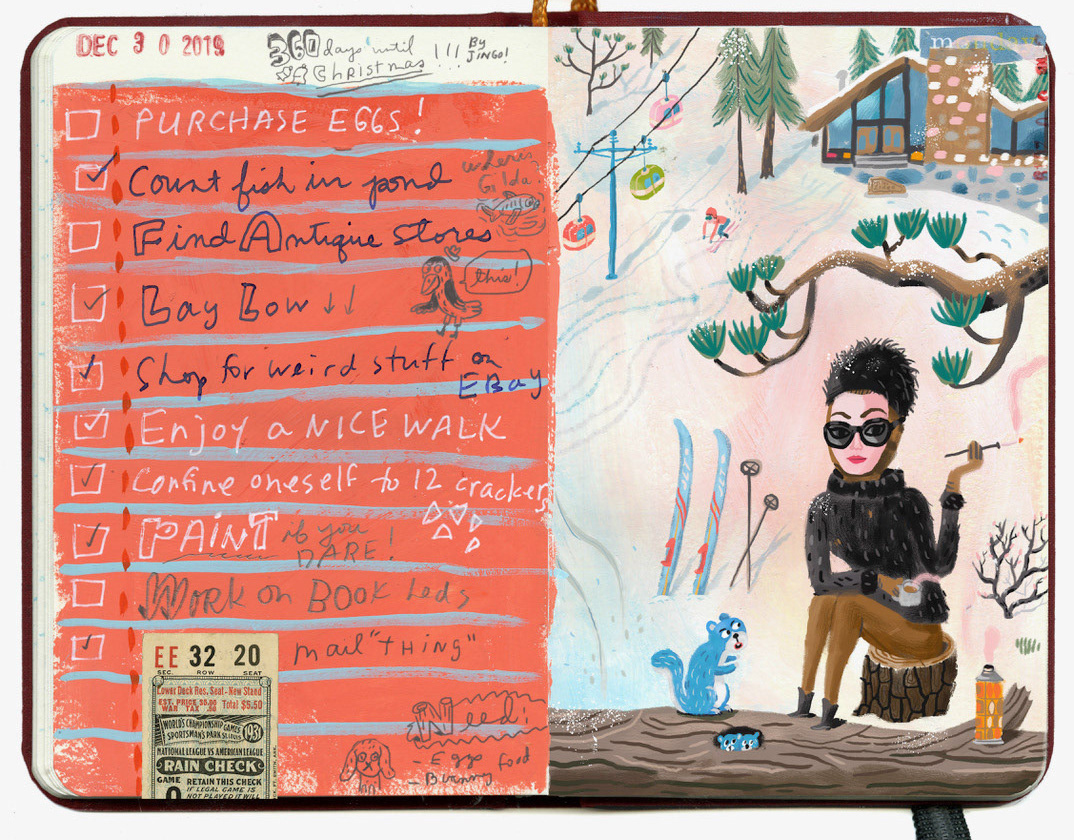 DEC 30 2019
360 days until
Christmas !!!
By
JINGO!
monday
PURCHASE EGGS!
Count fish in pond
Gilda
Find Antique stores
this!
Lay Low
Shop for weird stuff on
EBay
Enjoy a NICE WALK
Confine oneself to 12 crackers
PAINT if you
DARE!
Work on BOOK
mail "THING"
EE 32 20
SEC. ROW SEAT
Lower Deck Res. Seat - New Stand
EST. PRICE $5.00
WAR TAX .50
Total $5.50
WORLD'S CHAMPIONSHIP GAMES
SPORTSMAN'S PARK ST. LOUIS
1931
NATIONAL LEAGUE VS AMERICAN LEAGUE
RAIN CHECK
GAME
RETAIN THIS CHECK
IF LEGAL GAME IS
NOT PLAYED IT WILL
Need:
- Eggs
- Bunny food